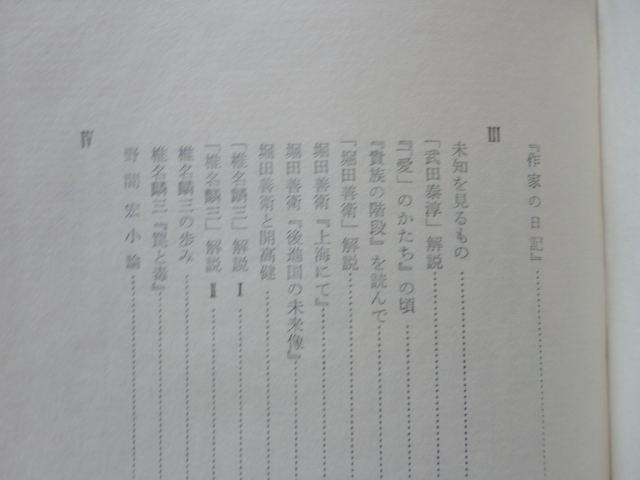 『作家の日記』
III
未知を見るもの
「武田泰淳」解説
『「愛」のかたち』の頃
『貴族の階段』を読んで
「堀田善衛」解説
堀田善衛『上海にて』
堀田善衛『後進国の未来像』
堀田善衛と開高健
「椎名麟三」解説 I
「椎名麟三」解説 II
椎名麟三の歩み
椎名麟三『罠と毒』
野間宏小論
IV